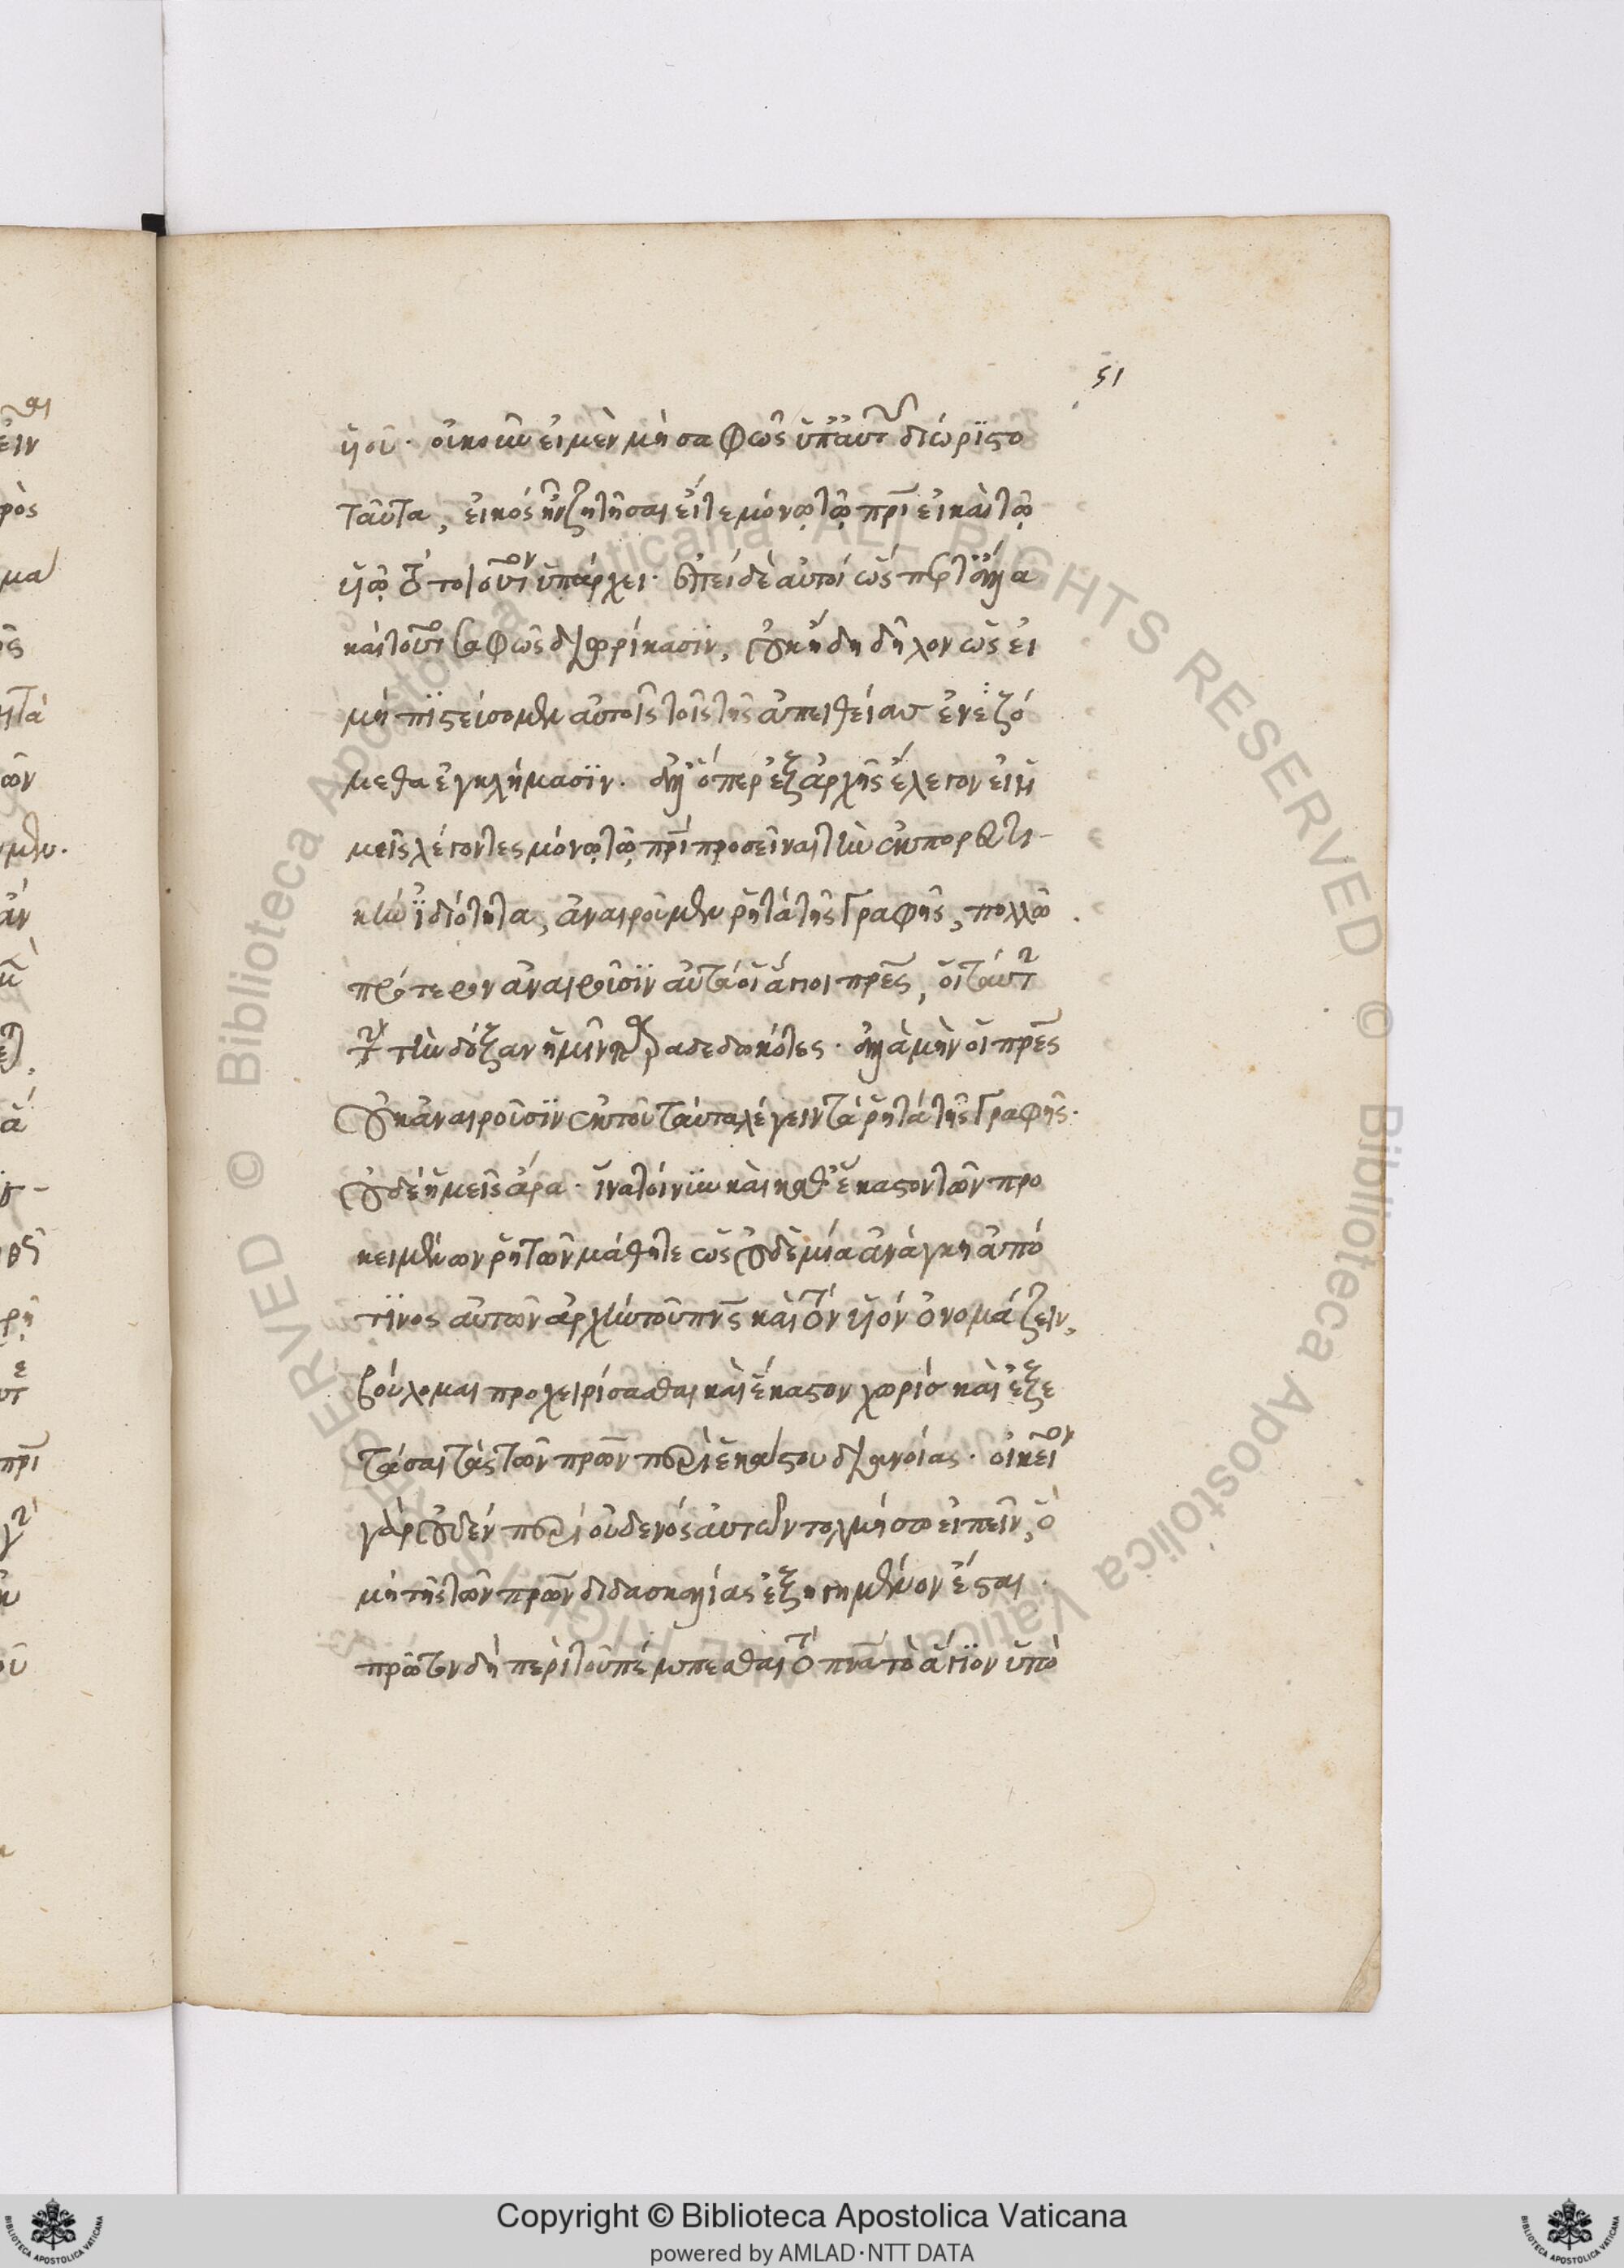 51
ὑιοῦ· οὐκοῦν εἰ μὲν μὴ σαφῶς ὑπ' αὐτῶν διώριστο
ταῦτα, εἰκὸς ἦν ζητῆσαι εἴτε μόνῳ τῷ πρῒ εἰ καὶ τῷ
ὑιῷ τὸ τοιοῦτον ὑπάρχει· ἐπεὶ δὲ αὐτοὶ ὡς περ τἄλλα
καὶ τοῦτο σαφῶς διευκρίκασϊν, οὐκ ἤδη δῆλον ὡς εἰ
μὴ πϊστεύσομεν αὐτοῖς τοῖς τῆς ἀπειθείας ἐνεξό
μεθα ἐγκλήμασϊν· ἀλλ' ὅπερ ἐξ ἀρχῆς ἔλεγον εἰ ἡ
μεῖς λέγοντες μόνῳ τῷ πρῒ προσεῖναι τὴν ἐκπορευτι-
κὴν ϊδιότητα, ἀναιροῦμεν ῥητὰ τῆς Γραφῆς, πολλῷ
πρότερον ἀναιροῦσϊν αὐτὰ οἱ ἅγιοι πρες, οἱ ταύτην
τὴν δόξαν ἡμῖν παραδεδωκότες· ἀλλὰ μὴν οἱ πρες
οὐκ ἀναιροῦσϊν ἐκ τοῦ ταῦτα λέγειν τὰ ῥητὰ τῆς Γραφῆς·
οὐδὲ ἡμεῖς ἄρα· ἵνα τοίνυν καὶ καθ' ἕκαστον τῶν προ
κειμένων ῥητῶν μάθητε ὡς οὐδεμία ἀνάγκη ἀπό
τϊνος αὐτῶν ἀρχὴν τοῦ πνς καὶ τὸν ὑιὸν ὀνομάζειν,
βούλομαι προχειρίσασθαι καὶ ἕκαστον χωρὶς καὶ ἐξε
τάσαι τὰς τῶν πρων περὶ ἑκάστου διανοίας· οἰκεῖον
γὰρ οὐδὲν περὶ οὐδενὸς αὐτῶν τολμήσω εἰπεῖν, ὃ
μὴ τῆς τῶν πρων διδασκαλίας ἐξηγημένον ἔσται·
πρῶτον δὴ περὶ τοῦ πέμπεσθαι τὸ πνα τὸ ἅγϊον ὑπὸ
Copyright © Biblioteca Apostolica Vaticana
powered by AMLAD·NTT DATA